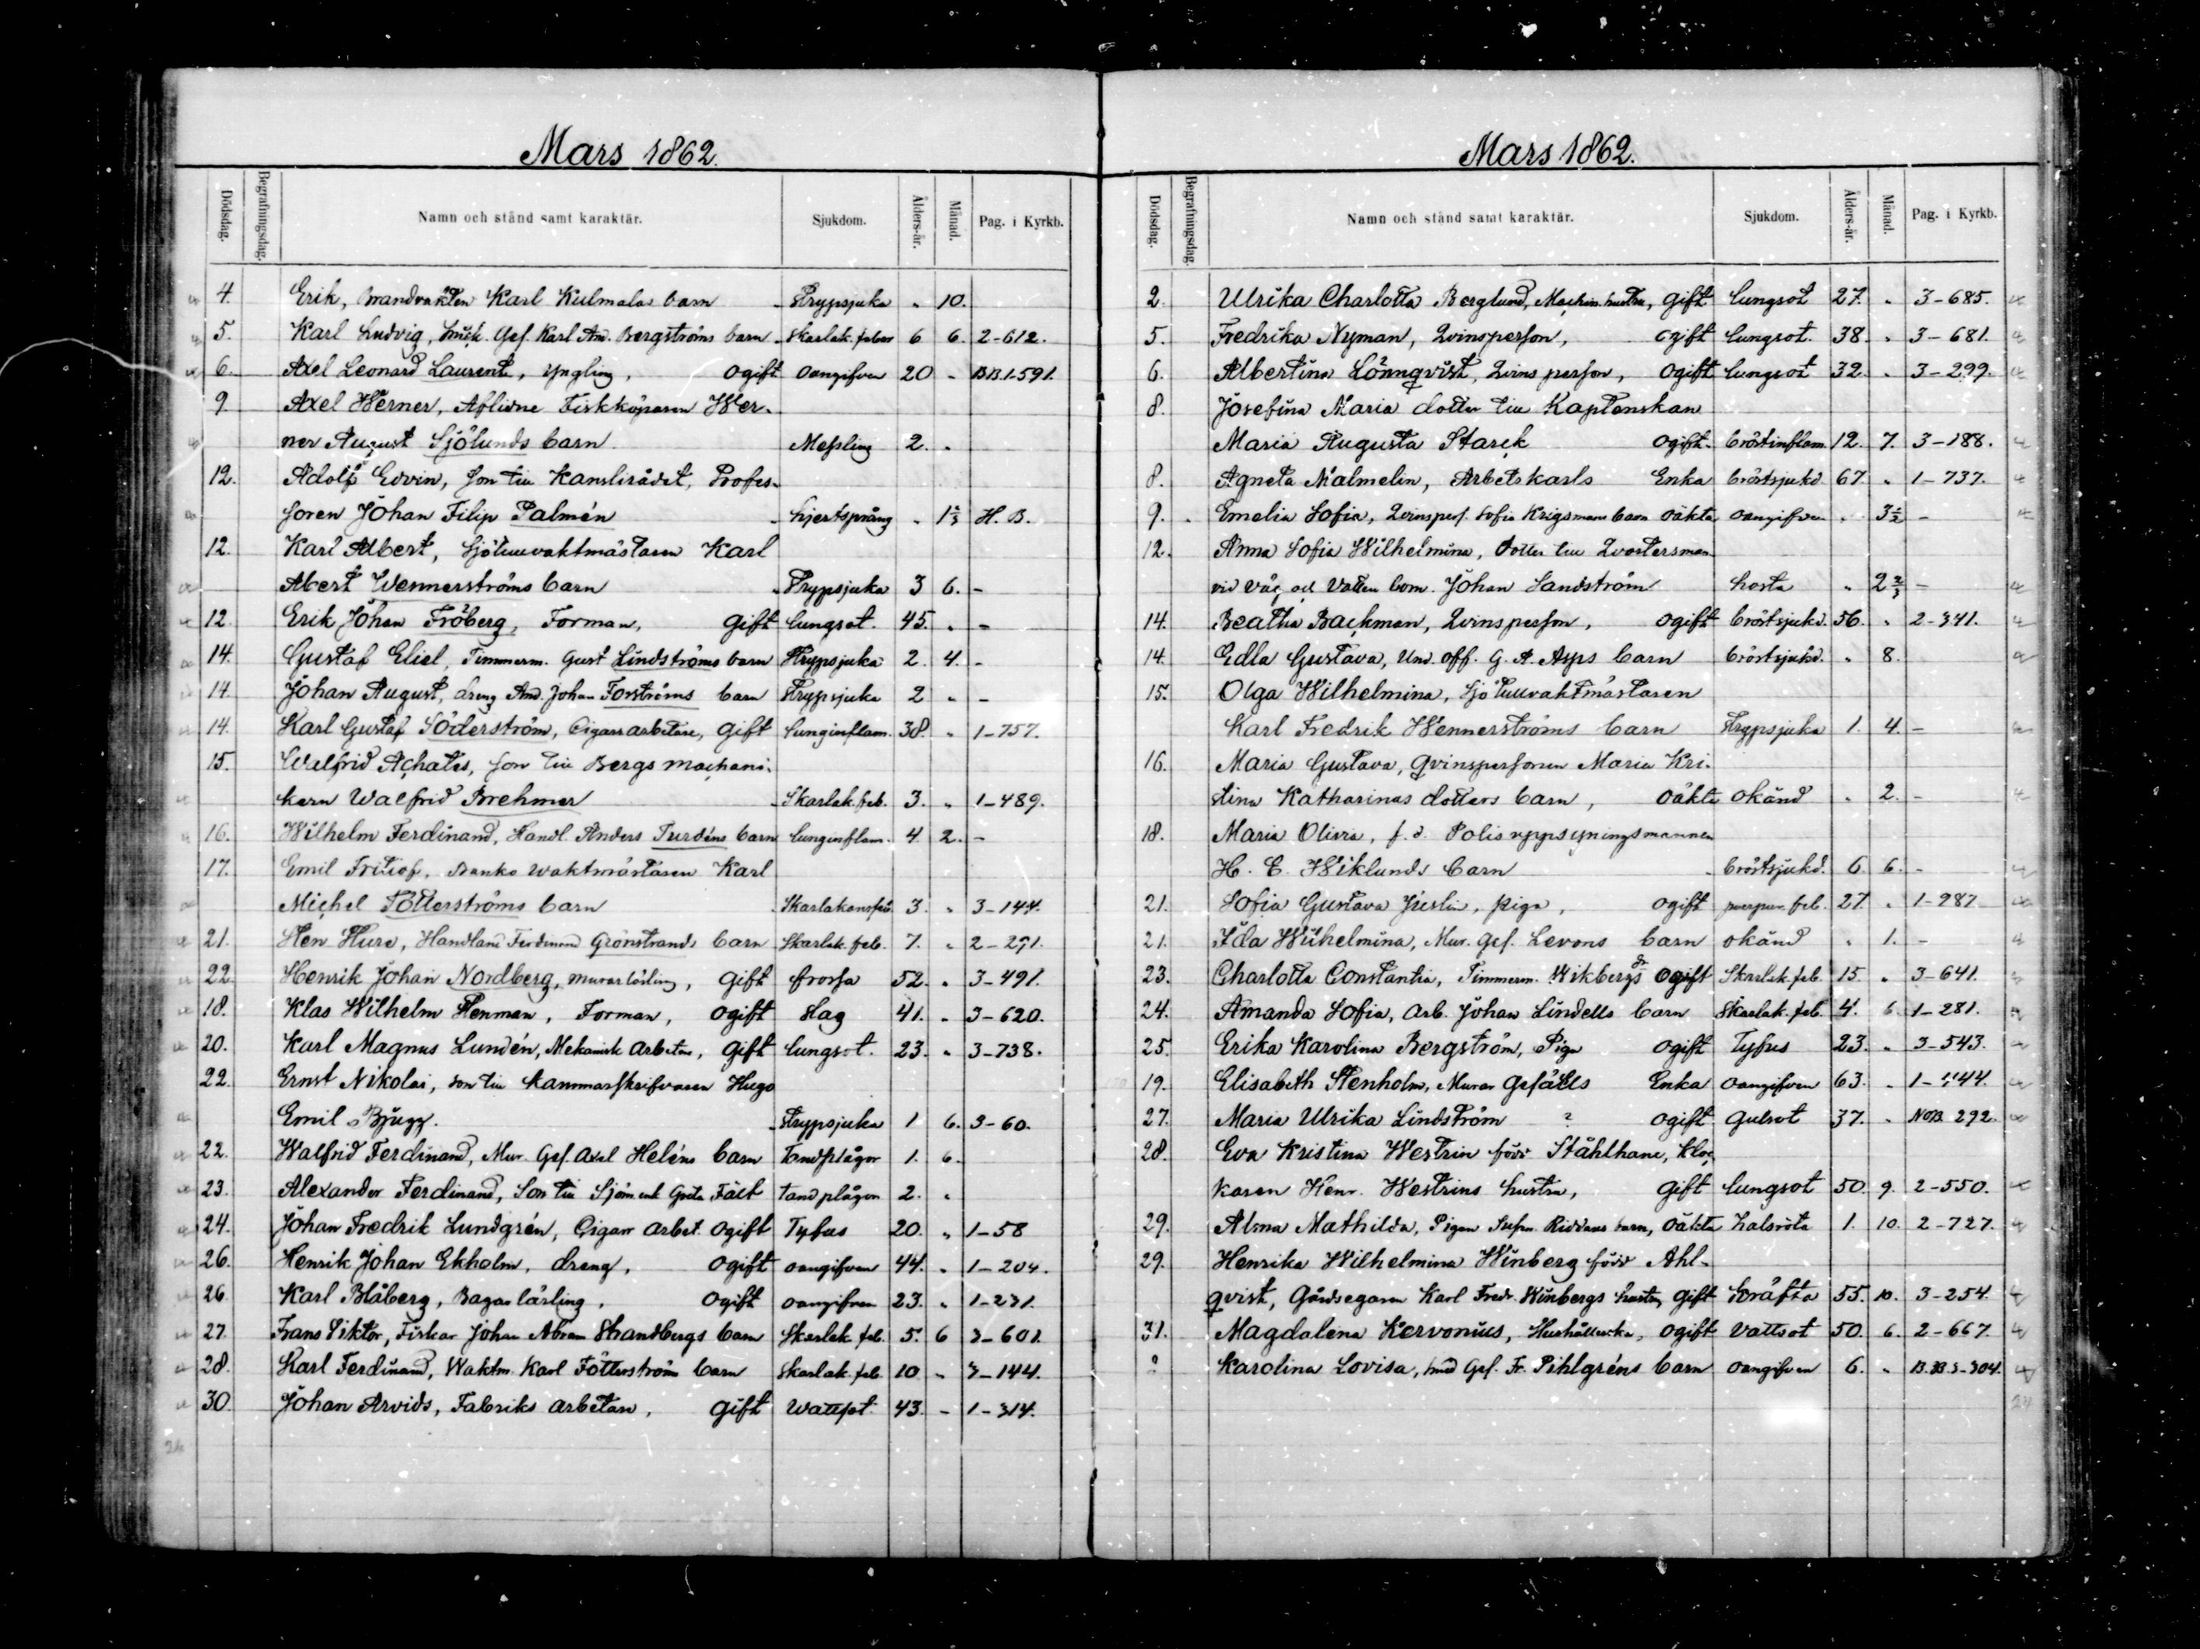 Mars 1862.
Dödsdag. Begrafningsdag. Namn och stånd samt karaktär. Sjukdom. Ålders-år. Månad. Pag. i Kyrkb.
4. Erik, Brandvakten Karl Kulmalas barn Strypsjuka " 10.
5. Karl Ludvig, Gef. Karl And. Bergströms barn Skarlak. feber 6 6. 2-612.
6. Axel Leonard Laurent, Yngling, ogift oangifven 20 - BB.1.591.
9. Axel Werner, Aflidne Fiskköparen Wer-
ner August Sjölunds barn Messling 2. "
12. Adolf Edvin, son till Kanslirådet, Profes-
soren Johan Filip Palmén hjertsprång " H. B.
12. Karl Albert, Sjötullvaktmästaren Karl
Albert Wennerströms barn Strypsjuka 3 6. -
12. Erik Johan Fröberg, Forman, gift lungsot. 45. " -
14. Gustaf Eliel, Timmerm. Gust Lindströms barn Strypsjuka 2. 4. -
14. Johan August, dreng And. Johan Forströms barn Strypsjuka 2 " -
14. Karl Gustaf Söderström, Cigarrarbetare, gift lunginflam. 38. " 1-757.
15. Walfrid Achates, son till Bergs machani-
kern Walfrid Brehmer Skarlak. feb. 3. " 1-489.
16. Wilhelm Ferdinand, Handl. Anders Turdéns barn lunginflam. 4 2. -
17. Emil Fritiof, Banko waktmästaren Karl
Michel Fötterströms barn Skarlakansfeb. 3. " 3-144.
21. Sten Sture, Handland Ferdinand Grönstrands barn Skarlak. feb. 7. " 2-291.
22. Henrik Johan Nordberg, murarlärling, gift frossa 52. " 3-491.
18. Klas Wilhelm Stenman, Forman, ogift slag 41. " 3-620.
20. Karl Magnus Lundén, Mekanisk Arbetare, gift lungsot. 23. " 3-738.
22. Ernst Nikolai, son till Kammarskrifvaren Hugo
Emil Bjugg. Strypsjuka 1 6. 3-60.
22. Walfrid Ferdinand, Mur. Gef. Axel Heléns barn Tandplågor 1. 6.
23. Alexander Ferdinand, Son till Sjöm. enk Greta Fält tandplågor 2. "
24. Johan Fredrik Lundgrén, Cigarr arbet. ogift Tyfus 20. " 1-58
26. Henrik Johan Ekholm, dreng, ogift oangifven 44. " 1-204.
26. Karl Blåberg, Bagarlärling, ogift oangifven 23. " 1-231.
27. Frans Viktor, Fiskar Johan Abram Strandbergs barn Skarlak. feb. 5. 6 3-601.
28. Karl Ferdinand, Waktm. Karl Fötterström barn Skarlak. feb. 10 " 3-144.
30. Johan Arvids, Fabriks arbetare, gift Wattsot. 43. - 1-314.
26
Mars 1862.
Dödsdag. Begrafningsdag. Namn och stånd samt karaktär. Sjukdom. Ålders-år. Månad. Pag. i Kyrkb.
2. Ulrika Charlotta Berglund, Machin. hustru, gift lungsot 27. " 3-685.
5. Fredrika Nyman, Qvinsperson, ogift lungsot. 38. " 3-681.
6. Albertina Lönnqvist, Qvinsperson, ogift lungsot 32. " 3-299.
8. Josefina Maria dotter till Kaptenskan
Maria Augusta Starck ogift. bröstinflam. 12. 7. 3-188.
8. Agneta Malmelin, Arbetskarls Enka bröstsjukd. 67. " 1-737.
9. Emelia Sofia, Qvinspers. Sofia Krigsmans barn oäkta oangifven " 3½ -
12. Anna Sofia Wilhelmina, dotter till Qvartersman
vid väg och vatten kom. Johan Sandström hosta " 2⅔ -
14. Beatha Backman, Qvinsperson, ogift bröstsjukd. 56. " 2-341.
14. Edla Gustava, Und. off. G. A. Asps barn bröstsjukd. " 8.
15. Olga Wilhelmina, Sjötullvaktmästaren
Karl Fredrik Wennerströms barn Strypsjuka 1. 4. -
16. Maria Gustava, qvinspersonen Maria Kri-
stina Katharinas dotters barn, oäkta okänd " 2. -
18. Maria Olivia, f. d. Polis uppsyningsmannen
H. E. Wiklunds barn bröstsjukd. 6. 6. -
21. Sofia Gustava Juslin, piga, ogift puerper. feb. 27. " 1-287
21. Ida Wilhelmina, Mur. Gef. Levons barn okänd " 1. -
23. Charlotta Constantia, Timmerm. Wikbergs dr ogift Skarlak. feb. 15. " 3-641.
24. Amanda Sofia, Arb. Johan Lindells barn Skarlak. feb. 4. 6. 1-281.
25. Erika Karolina Bergström, Piga ogift Tyfus 23. " 3-543.
19. Elisabeth Stenholm, Murar Gefälls Enka oangifven 63. "
27. Maria Ulrika Lindström ? ogift gulsot 37. " NOB. 292.
28. Eva Kristina Westrin född Ståhlhane, kloc
karen Henr. Westrins hustru, gift lungsot 50. 9. 2-550.
29. Alma Mathilda, Pigan barn, oäkta halsröta 1. 10. 2-727.
29. Henrika Wilhelmina Winberg född Ahl-
qvist, Gårdsegaren Karl Fredr. Winbergs hustru, gift kräfta 55. 10. 3-254.
31. Magdalena Kervonius, Hushållerska, ogift vattsot 50. 6. 2-667.
? Karolina Lovisa, Gef. Fr. Pihlgréns barn oangifven 6. " B.B 3-304.
24